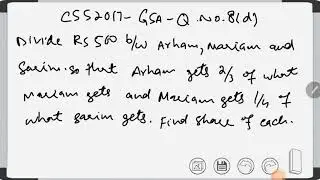 CSS2017-GSA-Q.No.8(d)
Divide Rs 500 b/w Arham, Mariam and
Sarim. so that Arham gets 2/3 of what
Mariam gets and Mariam gets 1/4 of
what sarim gets. Find share of each.